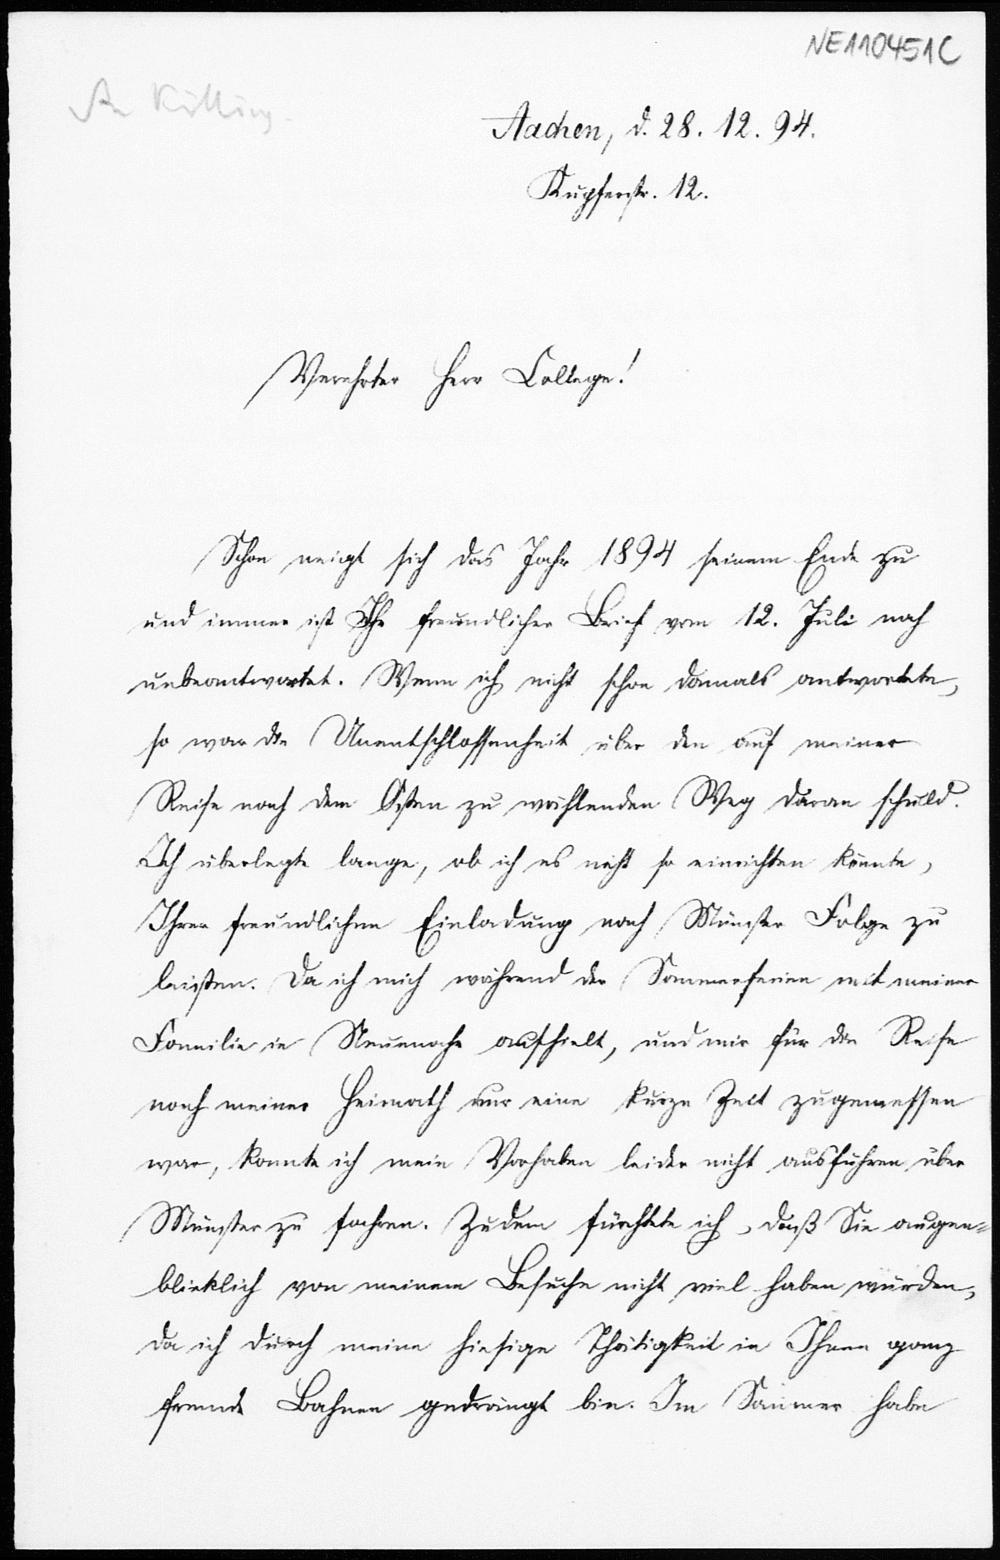 NE110451C
An Killing.
Aachen, d. 28. 12. 94.
Kupferstr. 12.
Verehrter Herr College!
Schon neigt sich das Jahr 1894 seinem Ende zu
und immer ist Ihr freundlicher Brief vom 12. Juli noch
unbeantwortet. Wenn ich nicht schon damals antwortete,
so war die Unentschlossenheit über den auf meiner
Reise nach dem Osten zu wählenden Weg daran schuld.
Ich überlegte lange, ob ich es nicht so einrichten könnte,
Ihrer freundlichen Einladung nach Münster Folge zu
leisten. Da ich mich während der Sommerferien mit meiner
Familie in aufhielt, und mir für die Reise
nach meiner Heimath nur eine kurze Zeit zugemessen
war, konnte ich mein Vorhaben leider nicht ausführen über
Münster zu fahren. Zudem fürchtete ich, daß Sie augen=
blicklich von meinem Besuche nicht viel haben würden,
da ich durch meine hiesige Thätigkeit in Ihnen ganz
fremde Bahnen gedrängt bin. Im Sommer habe